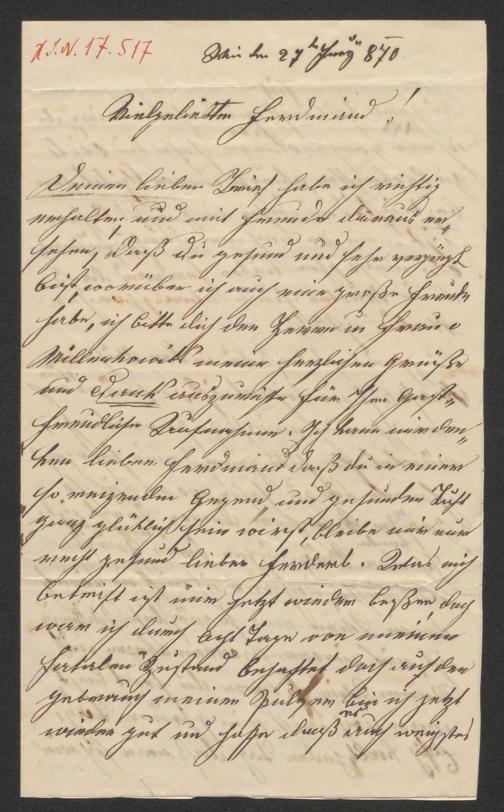 H.I.N. 17.517
Wien den 27t Juny 870
Vielgeliebter Ferdinand!
Deinen lieben Brief habe ich richtig
erhalten, und mit Freude daraus er-
sehen, daß du gesund und sehr vergnügt
bist, worüber ich auch eine große Freude
habe, ich bitte dich den Herrn u Frau v
meine herzlichen Grüße
und Dank auszurichten für Ihre Gast-
freundliche Aufnahme. Ich kann mir den-
ken lieber Ferdinand daß du in einer
so reizenden Gegend, und gesunden Luft
ganz glücklich sein wirst, bleibe mir nur
recht gesund lieber Ferdinand. Was mich
betrift ist mir jetzt wieder beßer, doch
war ich durch acht Tage von meinem
fatalen Zustand behaftet doch auf den
gebrauch meiner Pulver bin ich jetzt
wieder gut und hoffe daß es auch wenigstens